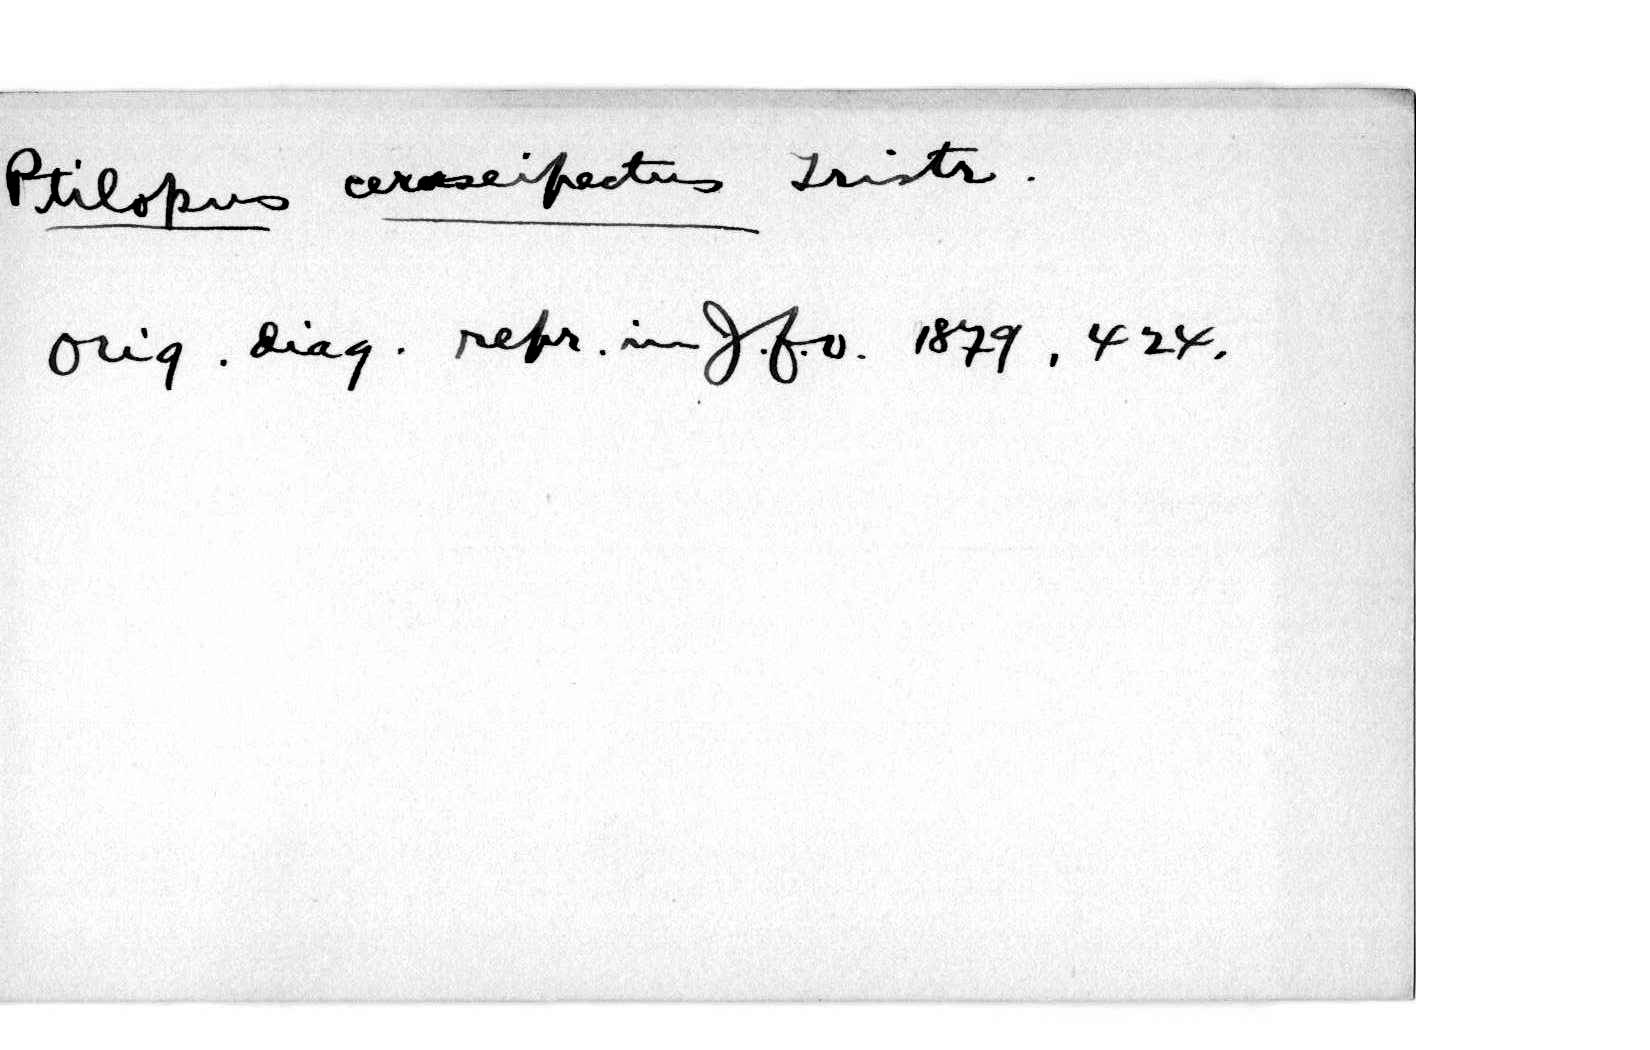 Ptilopus ceraseipectus Tristr.
Orig. diag. repr. in J.f.O. 1879, 424.